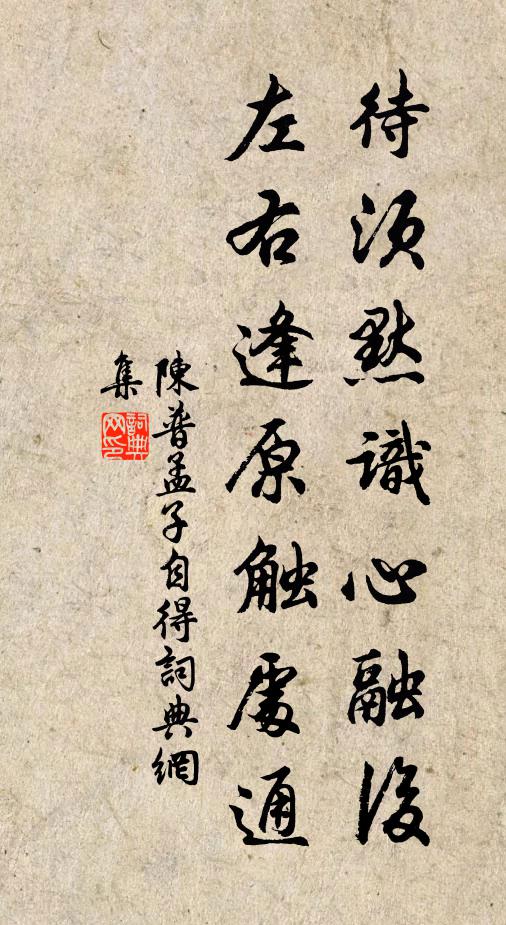 待須默識心融後
左右逢原触處通
陳普孟子自得詞典網
集
詞典
网印